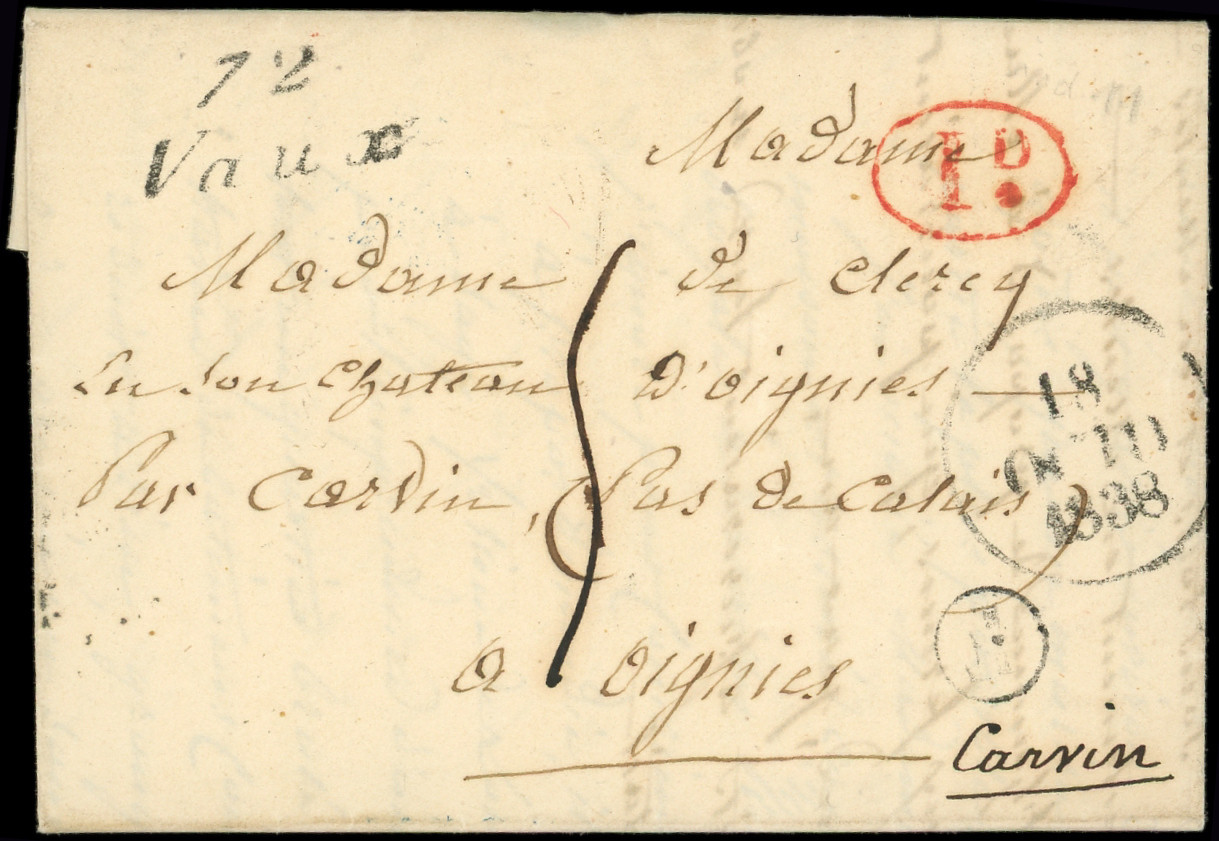 72
Vaux
Madame
1 D
Madame de Clercy
En son Chateau d'oignies
Par Carvin, (Pas de Calais)
18
1838
a oignies
Carvin